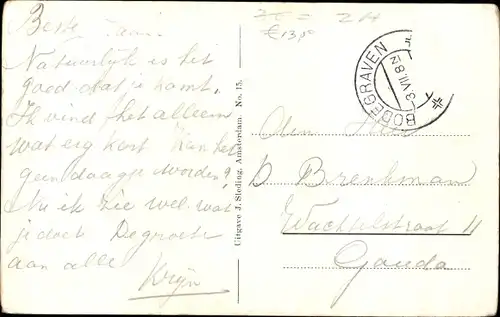 Beste Jaan
Natuurlijk is het
goed dat je komt.
Ik vind het alleen
wat erg kort Kan het
geen daagje worden?
Nu ik zie wel wat
je doet De groete
aan alle
Krijn
Uitgave J. Sleding, Amsterdam. No. 15.
€13,50
BODEGRAVEN
3.VII.
Den Heer
Brenkman
Wachtelstraat 11
Gouda